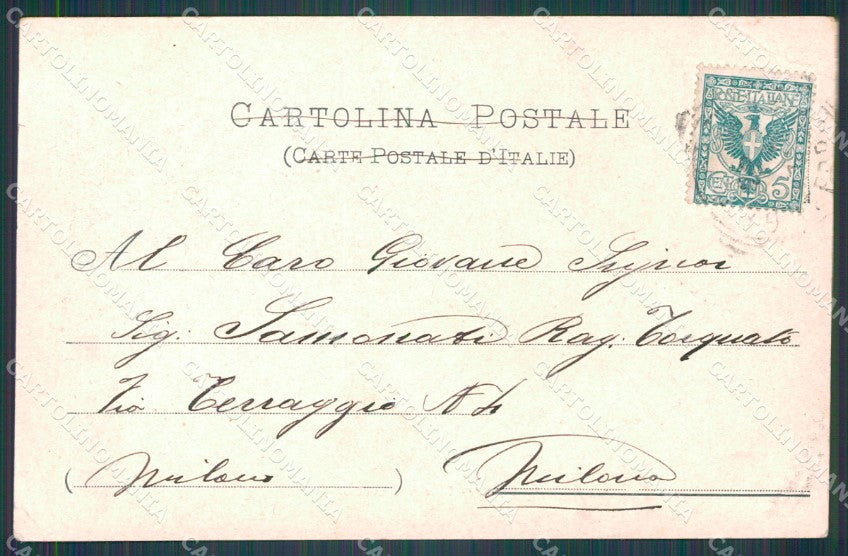 CARTOLINA POSTALE
(CARTE POSTALE D'ITALIE)
POSTE ITALIANE
CENT. 5
Al Caro Giovane Signor
Sig: Samonati Rag. Torquato
Via Terraggio N 4
(Milano) Milano
CARTOLINOMANIA